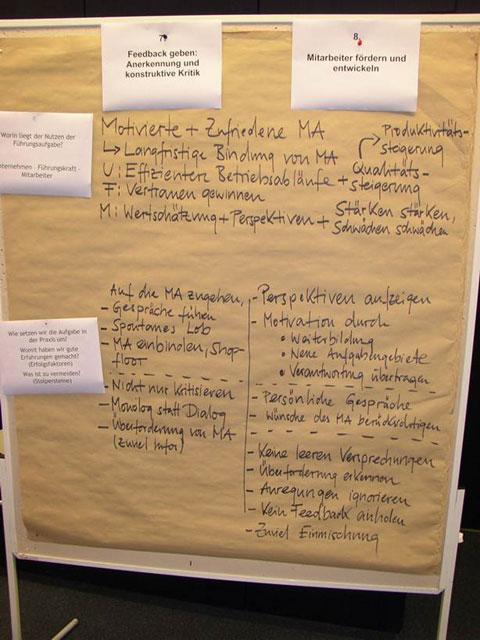 7.
Feedback geben:
Anerkennung und
konstruktive Kritik
8.
Mitarbeiter fördern und
entwickeln
Worin liegt der Nutzen der
Führungsaufgabe?
nternehmen - Führungskraft -
Mitarbeiter
Motivierte + Zufriedene MA
↳ Langfristige Bindung von MA
Produktivitäts-
steigerung
U: Effizientere Betriebsabläufe + Qualitäts-
steigerung
F: Vertrauen gewinnen
M: Wertschätzung + Perspektiven + Stärken stärken,
Schwächen schwächen
Wie setzen wir die Aufgabe in
der Praxis um?
Womit haben wir gute
Erfahrungen gemacht?
(Erfolgsfaktoren)
Was ist zu vermeiden?
(Stolpersteine)
Auf die MA zugehen,
- Gespräche führen
- Spontanes Lob
- MA einbinden, Shop-
floor
- Nicht nur kritisieren
- Monolog statt Dialog
- Überforderung von MA
(zuviel Infos)
- Perspektiven aufzeigen
- Motivation durch
• Weiterbildung
• Neue Aufgabengebiete
• Verantwortung übertragen
- Persönliche Gespräche
- Wünsche des MA berücksichtigen
- Keine leeren Versprechungen
- Überforderung erkennen
- Anregungen ignorieren
- Kein Feedback einholen
- Zuviel Einmischung